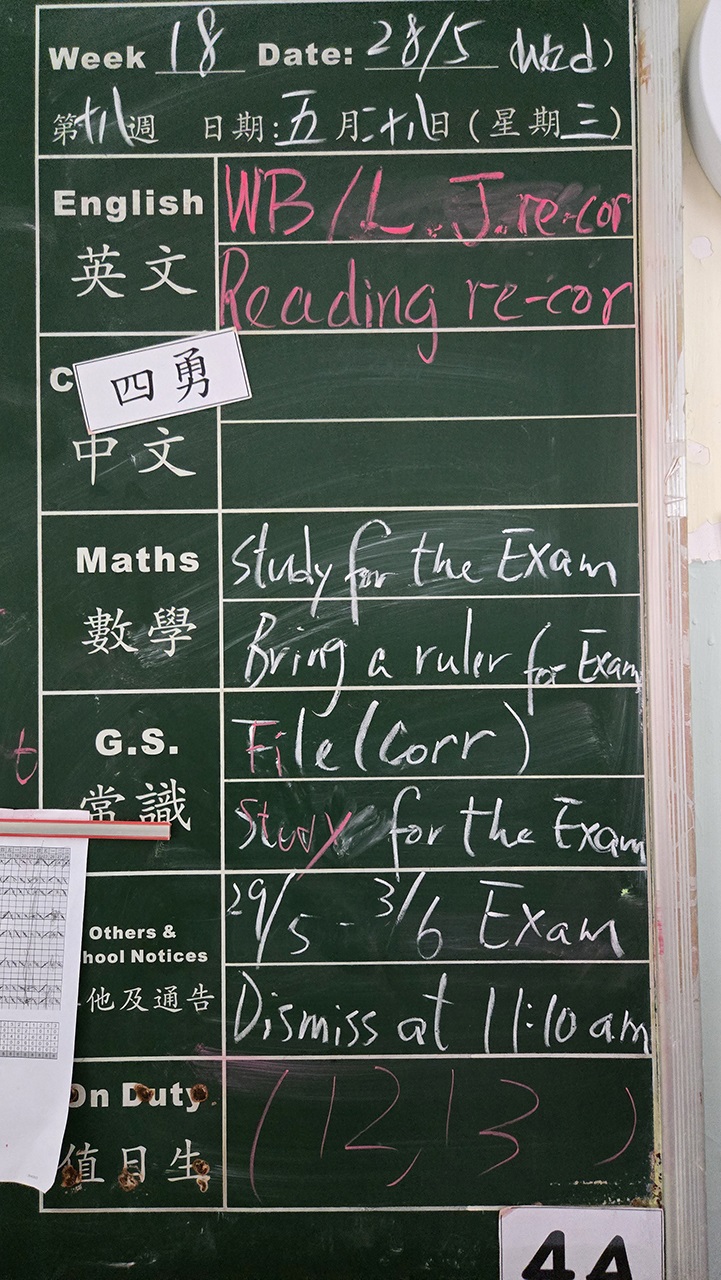 Week 18 Date: 28/5 (Wed)
第十八週 日期:五月二十八日(星期三)
English WB/L.J. re-cor
英文 Reading re-cor
C
四勇
中文
Maths Study for the Exam
數學 Bring a ruler for Exam
G.S. File(Corr)
常識 Study for the Exam
29/5 - 3/6 Exam
Others &
hool Notices
他及通告 Dismiss at 11:10 am
On Duty (12,13)
值日生
4A
t